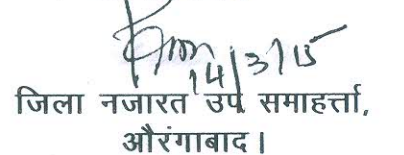 14/3/15
जिला नजारत उप समाहर्त्ता,
औरंगाबाद।